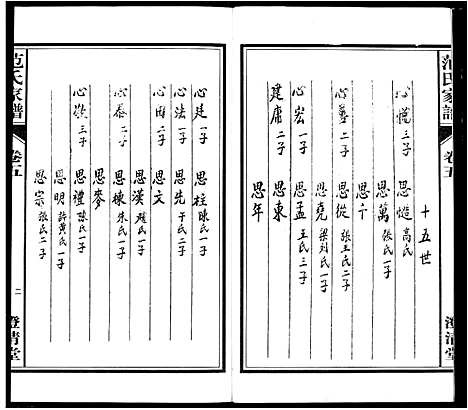 范氏家譜
卷五
澄清堂
十五世
心愷 三子 思愷 高氏
思萬 張氏 一子
思下
心藝 二子 思從 張王氏 二子
思堯 梁刘氏 一子
心宏 一子 思孟 王氏 三子
建庸 二子 思東
思年
心廷 一子 思柱 陳氏 一子
心法 一子 思先 于氏 二子
心田 二子 思文
思漢 趙氏 一子
心泰 二子 思棟 朱氏 一子
思參
心 三子 思禮 陳氏 一子
思明 許黃氏 一子
思宗 張氏 二子
范氏家譜
卷五
二
澄清堂